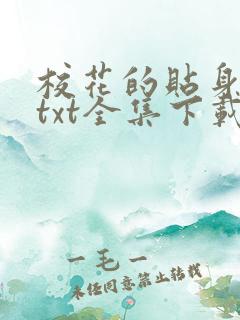 校花的贴身
txt全集下载
一毛一
未经同意禁止转载